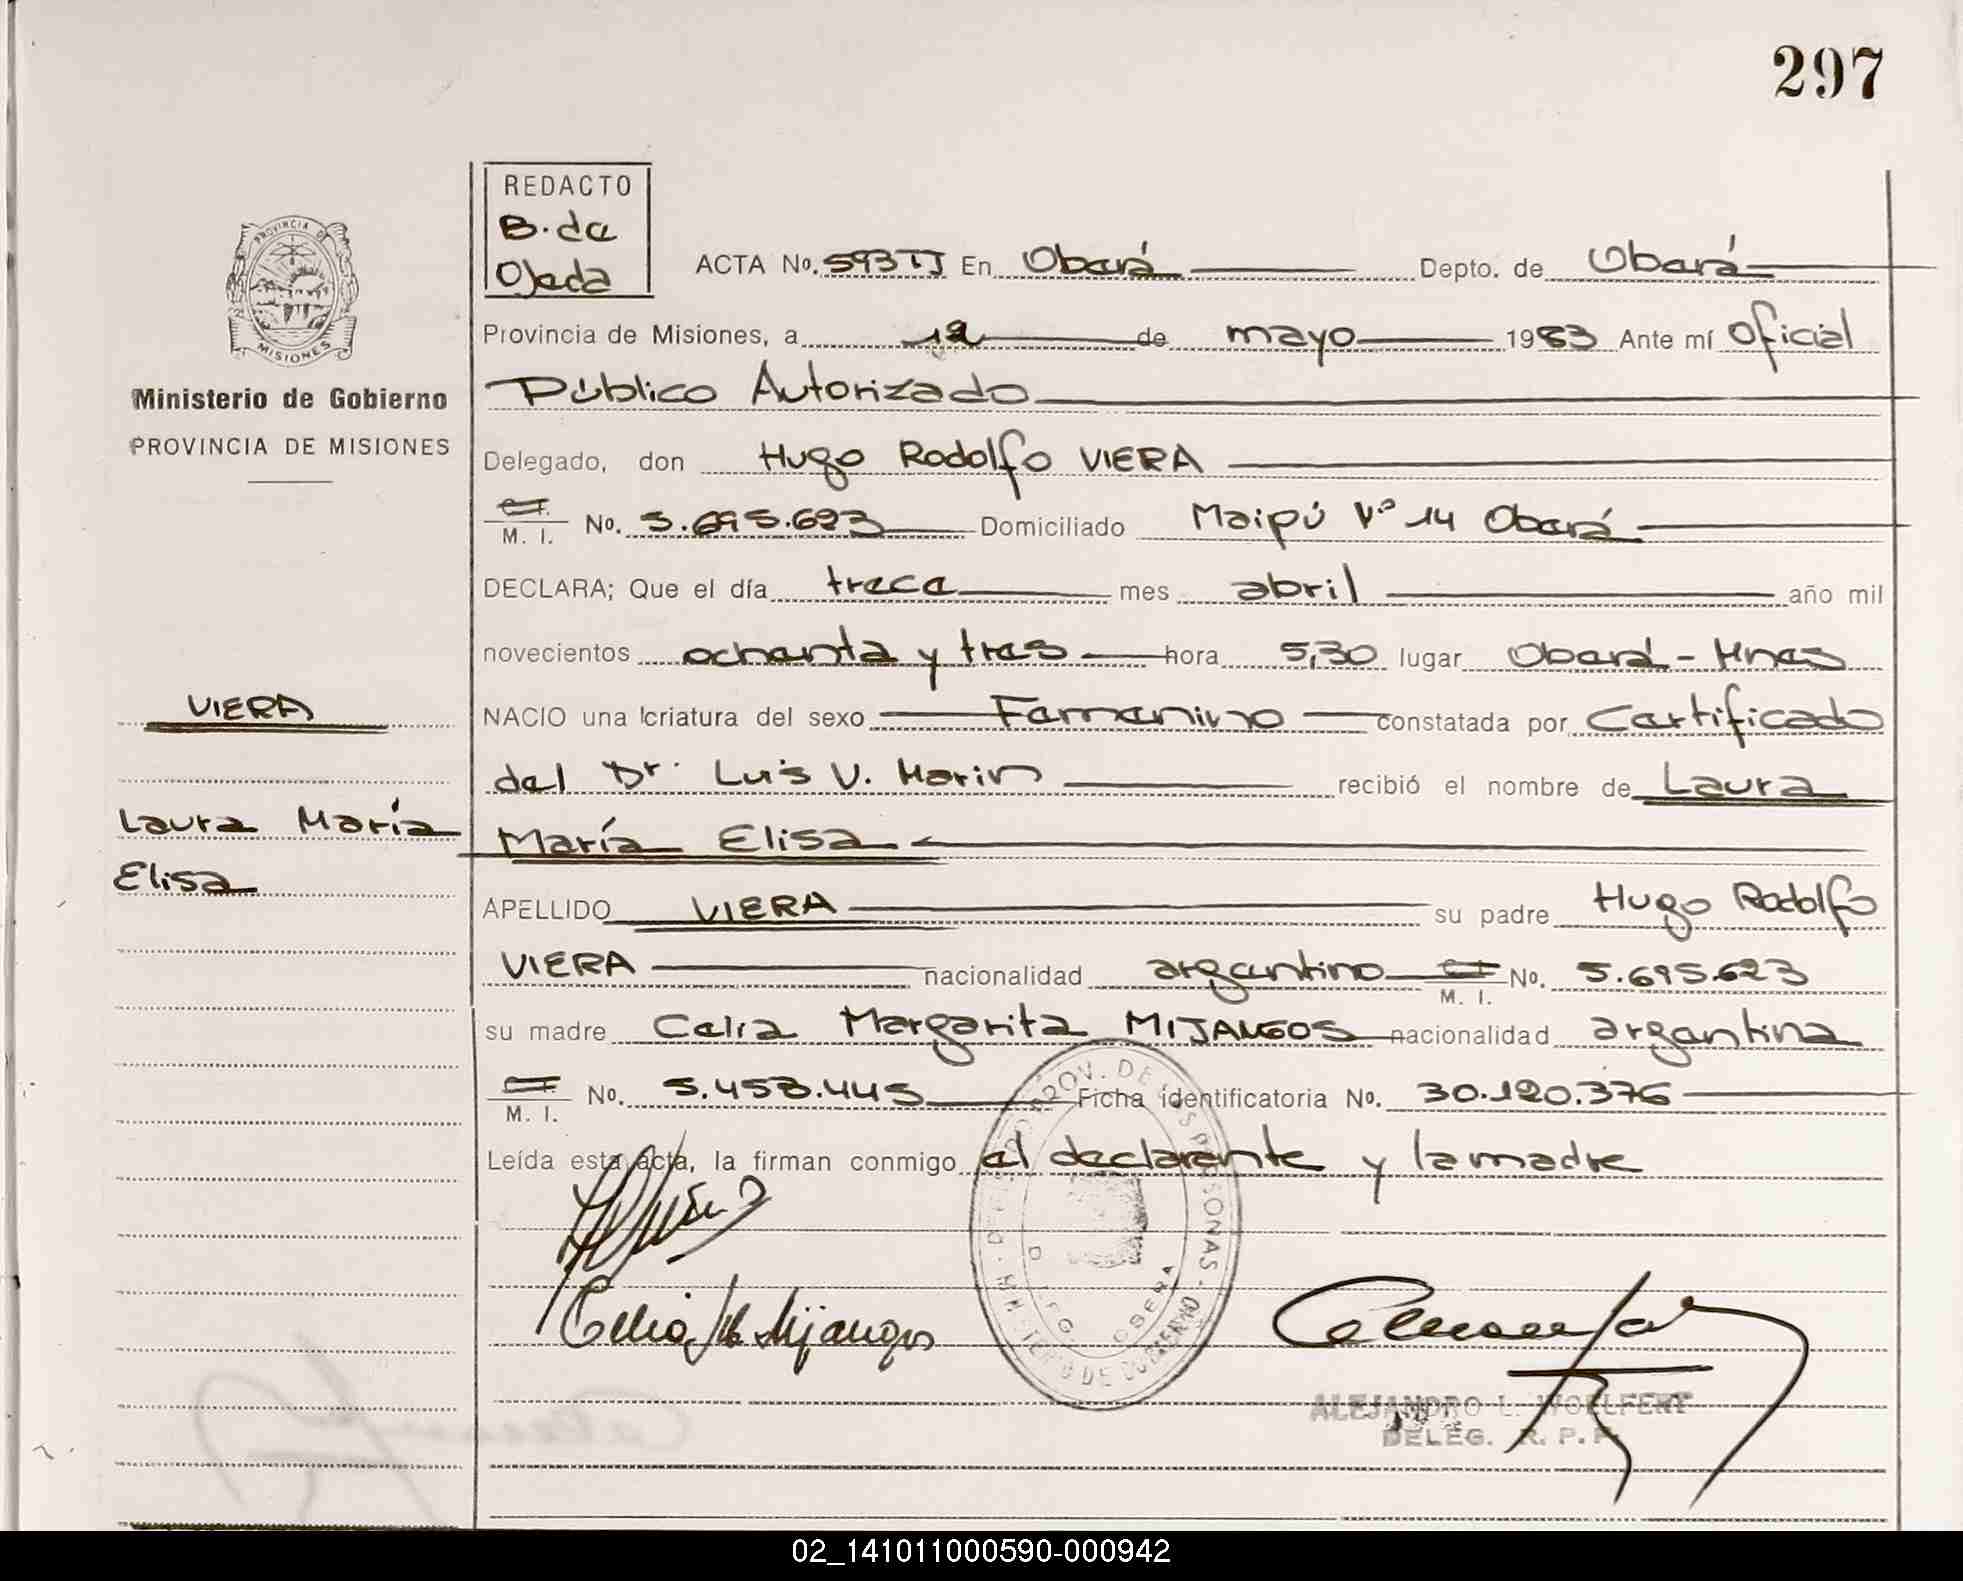 297
REDACTO
B. de
Ojeda
ACTA No. 593 TJ En Oberá Depto. de Oberá
Provincia de Misiones, a 12 de mayo 1983 Ante mí Oficial
Público Autorizado
PROVINCIA DE
MISIONES
Ministerio de Gobierno
PROVINCIA DE MISIONES
Delegado, don Hugo Rodolfo VIERA
M. I. No. 5.695.623 Domiciliado Maipú Nº 14 Oberá
DECLARA; Que el día trece mes abril año mil
novecientos ochenta y tres hora 5,30 lugar Oberá - Mnes
VIERA
NACIO una criatura del sexo Femenino constatada por Certificado
del Dr. Luis V. Marin recibió el nombre de Laura
Laura María
María Elisa
Elisa
APELLIDO VIERA su padre Hugo Rodolfo
VIERA nacionalidad argentino M. I. No. 5.695.623
su madre Celia Margarita MIJANGOS nacionalidad argentina
M. I. No. 5.458.445 Ficha identificatoria No. 30.120.376
Leída esta acta, la firman conmigo el declarante y la madre
PROV. DE LAS PERSONAS - MINISTERIO DE GOBIERNO
OBERA
Celia M. Mijangos
ALEJANDRO L. WOELFERT
DELEG. R. P. P.
02_141011000590-000942